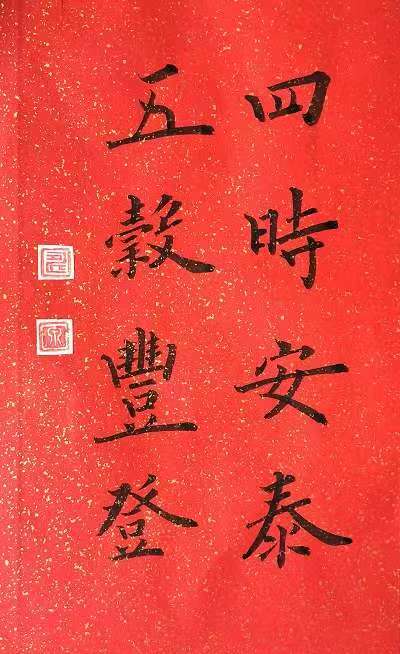 四時安泰
五穀豐登